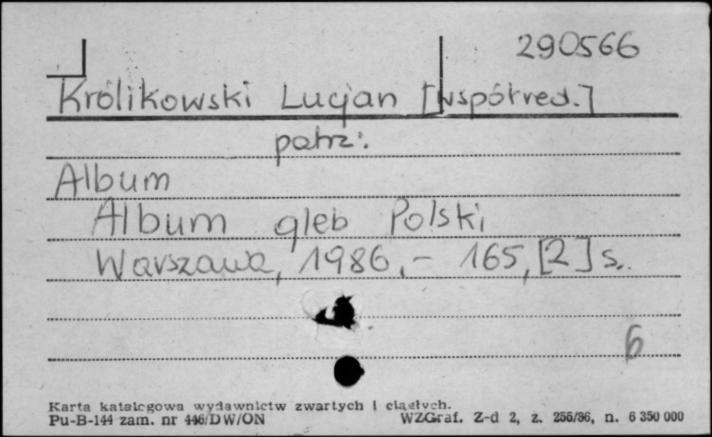 290566
Królikowski Lucjan [współred.]
patrz:
Album
Album gleb Polski
Warszawa, 1986.- 165, [2] s.
6
Karta katalogowa wydawnictw zwartych i ciągłych.
Pu-B-144 zam. nr 446/DW/ON WZGraf. Z-d 2, z. 256/86, n. 6 350 000